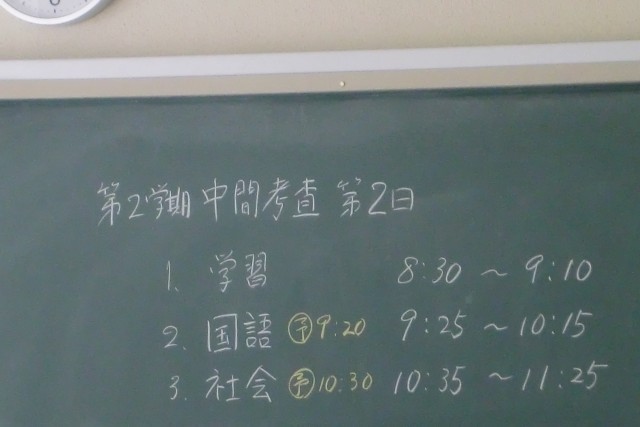 第2学期 中間考査 第2日
1. 学習 8:30 ～ 9:10
2. 国語 予9:20 9:25 ～ 10:15
3. 社会 予10:30 10:35 ～ 11:25